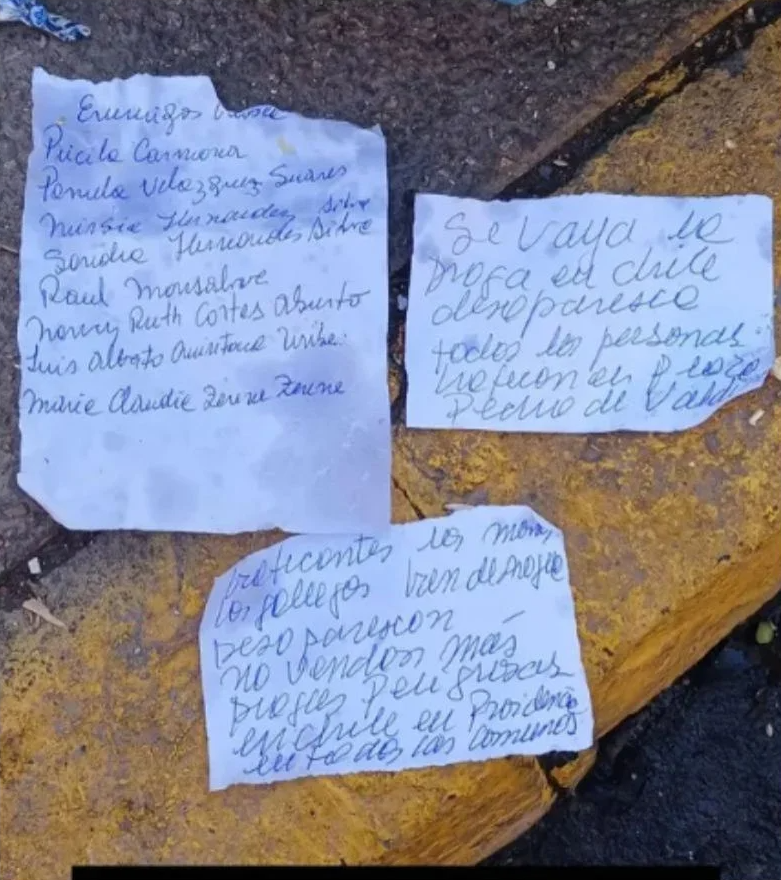 Enemigos
Pricila Carmona
Pamela Velazquez Suares
Hernandez Silva
Sandra Hernandes Silva
Raul Monsalve
Nancy Ruth Cortes Aburto
Luis Alberto Quintana Uribe.
Maria Claudia Zerene Zerene
Se vaya la
droga en chile
desaparesca
todos las personas
trafican en Plaza
Pedro de Vald
traficantes los
los gallegos tren de Aragua
desaparescan
no vendan más
drogas peligrosas
en chile en Providencia
en todas las comunas